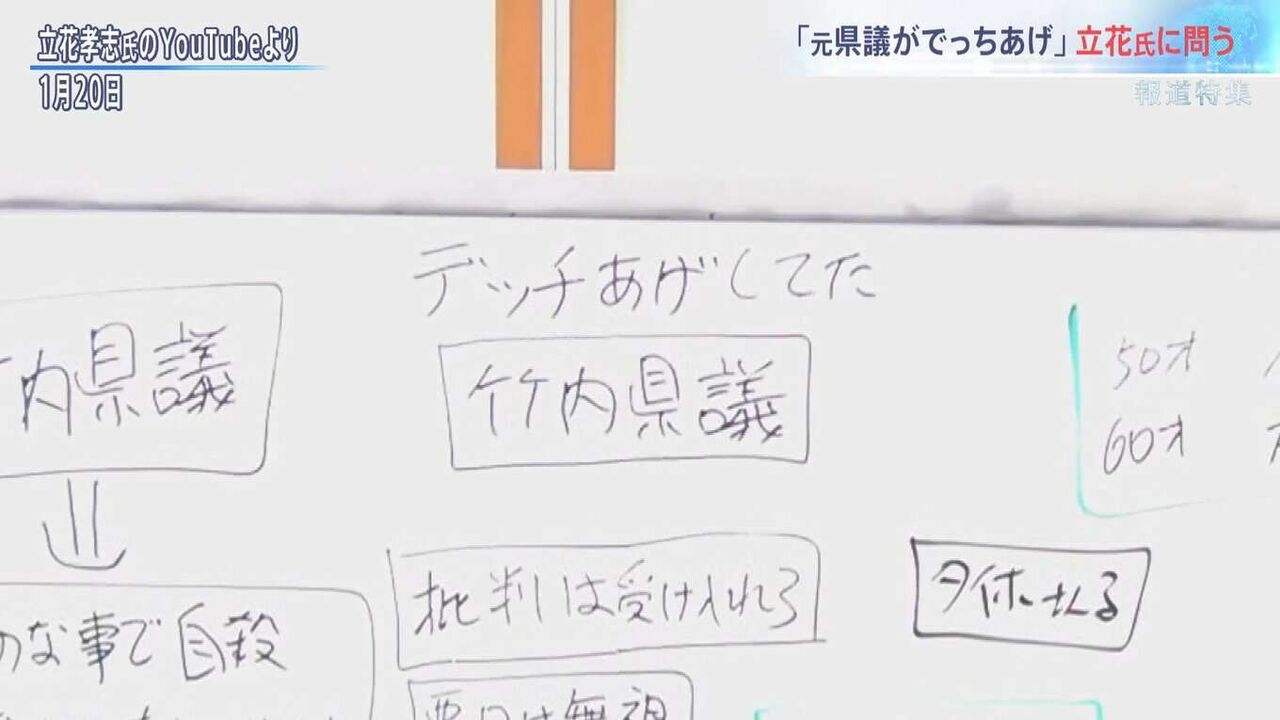 立花孝志氏のYouTubeより
1月20日
「元県議がでっちあげ」立花氏に問う
報道特集
デッチあげしてた
内県議
竹内県議
50才
60才
批判は受け入れろ
のな事で自殺
悪口は無視